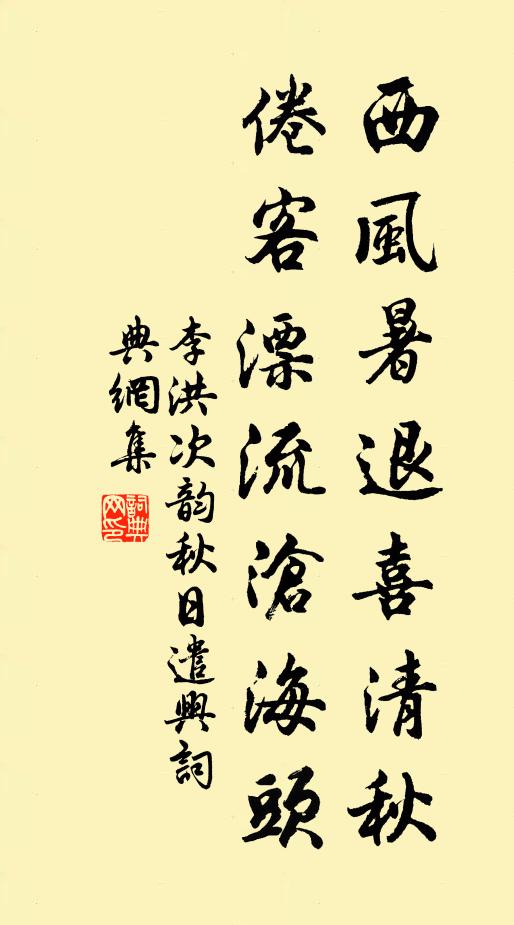 西風暑退喜清秋
倦客漂流滄海頭
李洪次韵秋日遣興詞
典網集
詞典網印